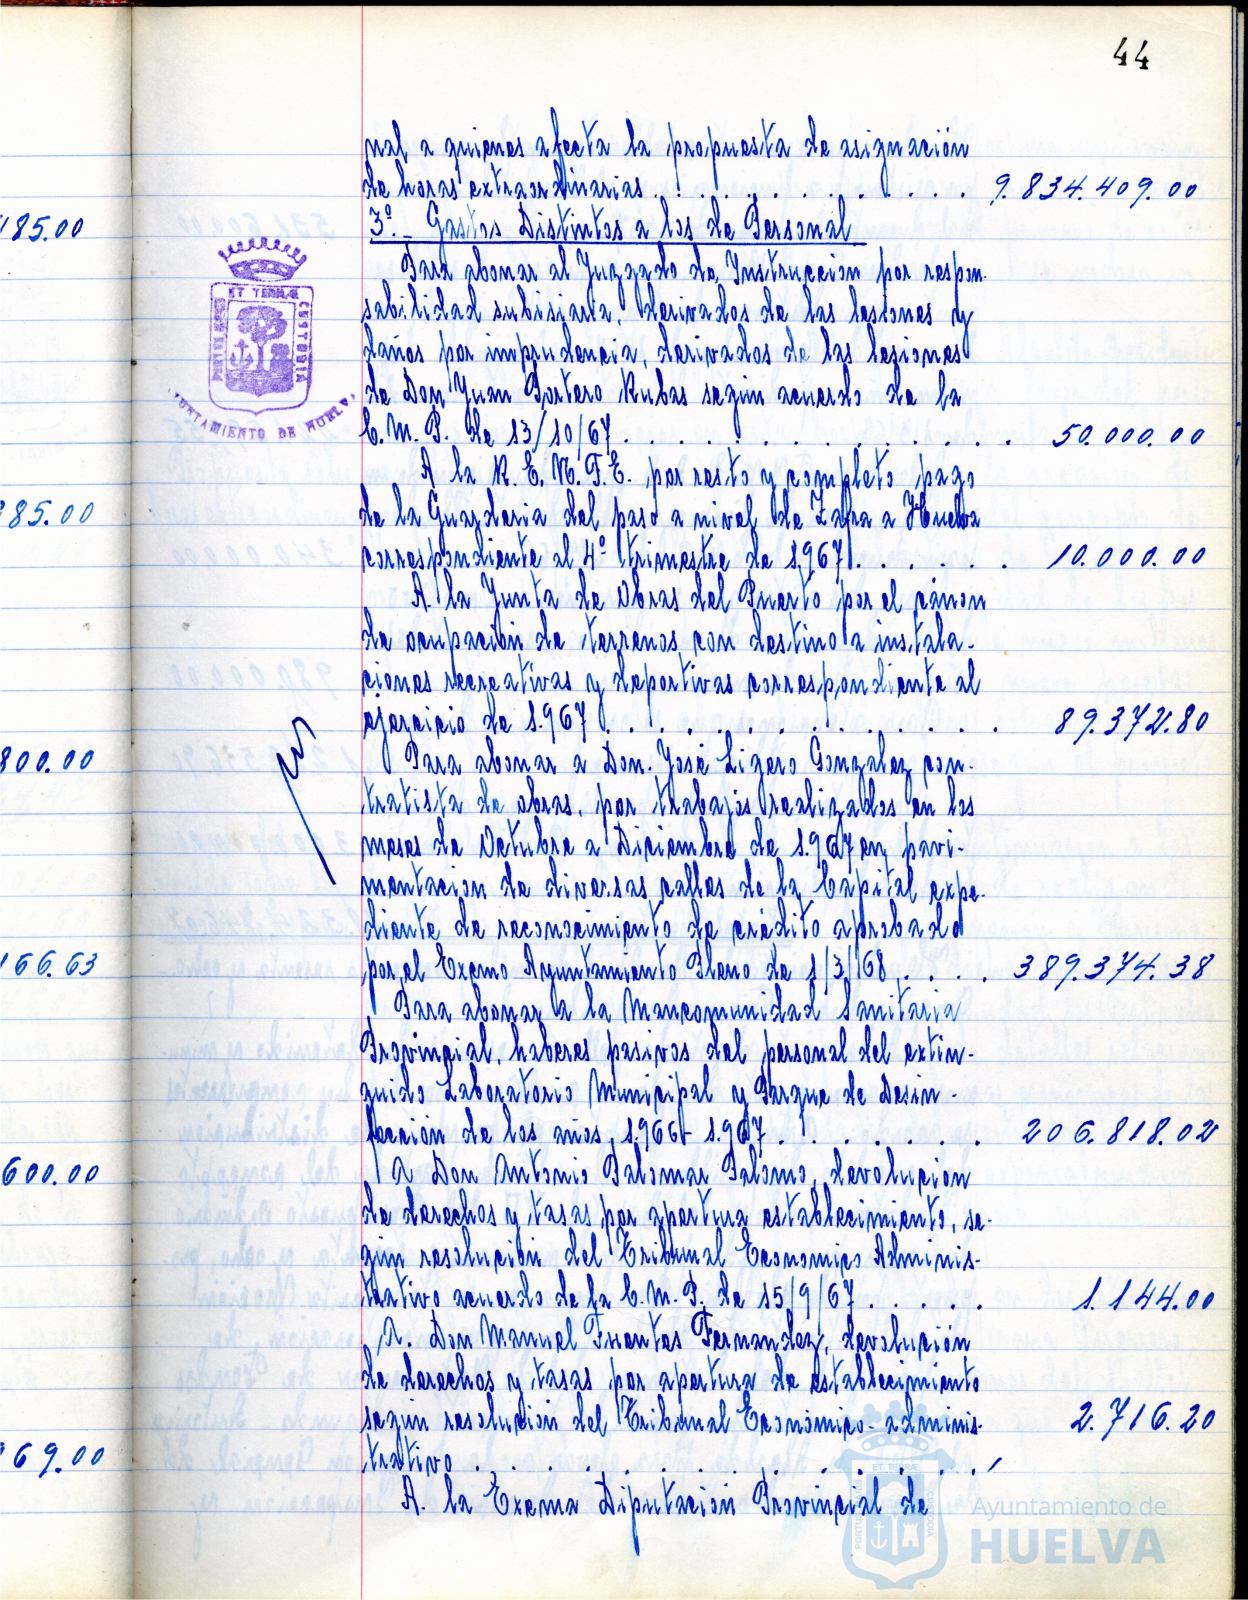 44
nal a quienes afecta la propuesta de asignación
de horas extraordinarias . . . . . . . . . . 9.834.409.00
3º.- Gastos Distintos a los de Personal
185.00
Para abonar al Juzgado de Instrucción por respon-
sabilidad subisiaria, derivados de las lesiones y
daños por imprudencia, derivados de las lesiones
de Don Juan Portero Rubas según acuerdo de la
C.M.P. de 13/10/67 . . . . . . . . . . 50.000.00
A la R.E.N.F.E. por resto y completo pago
de la Guarderia del paso a nivel de Zafra a Huelva
85.00
correspondiente al 4º trimestre de 1.967 . . . . . 10.000.00
A la Junta de Obras del Puerto por el cánon
de ocupación de terrenos con destino a instala-
ciones recreativas y deportivas correspondiente al
ejercicio de 1.967 . . . . . . . . . . 89.372.80
Para abonar a Don José Ligero Gonzalez con-
800.00
tratista de obras, por trabajos realizados en los
meses de Octubre a Diciembre de 1.967 en pavi-
mentacion de diversas calles de la Capital expe-
diente de reconocimiento de crédito aprobado
por el Excmo Ayuntamiento Pleno de 1/3/68 . . . . 389.374.38
166.63
Para abonar a la Mancomunidad Sanitaria
Provincial, haberes pasivos del personal del extin-
guido Laboratorio Municipal y Parque de Desin-
fección de los años 1.966 1.967 . . . . . . 206.818.02
A Don Antonio Palomar Palomo, devolucion
600.00
de derechos y tasas por apertura establecimiento, se-
gún resolución del Tribunal Economico Adminis-
trativo acuerdo de la C.M.P. de 15/9/67 . . . . . 1.144.00
A. Don Manuel Fuentes Fernandez, devolución
de derechos y tasas por apertura de establecimiento
según resolución del Tribunal Económico-adminis- 2.716.20
trativo . . . . . . . . . .
69.00
A. la Excma Diputación Provincial de
ET TERRAE
CUSTODIA
AYUNTAMIENTO DE HUELVA
Ayuntamiento de
HUELVA